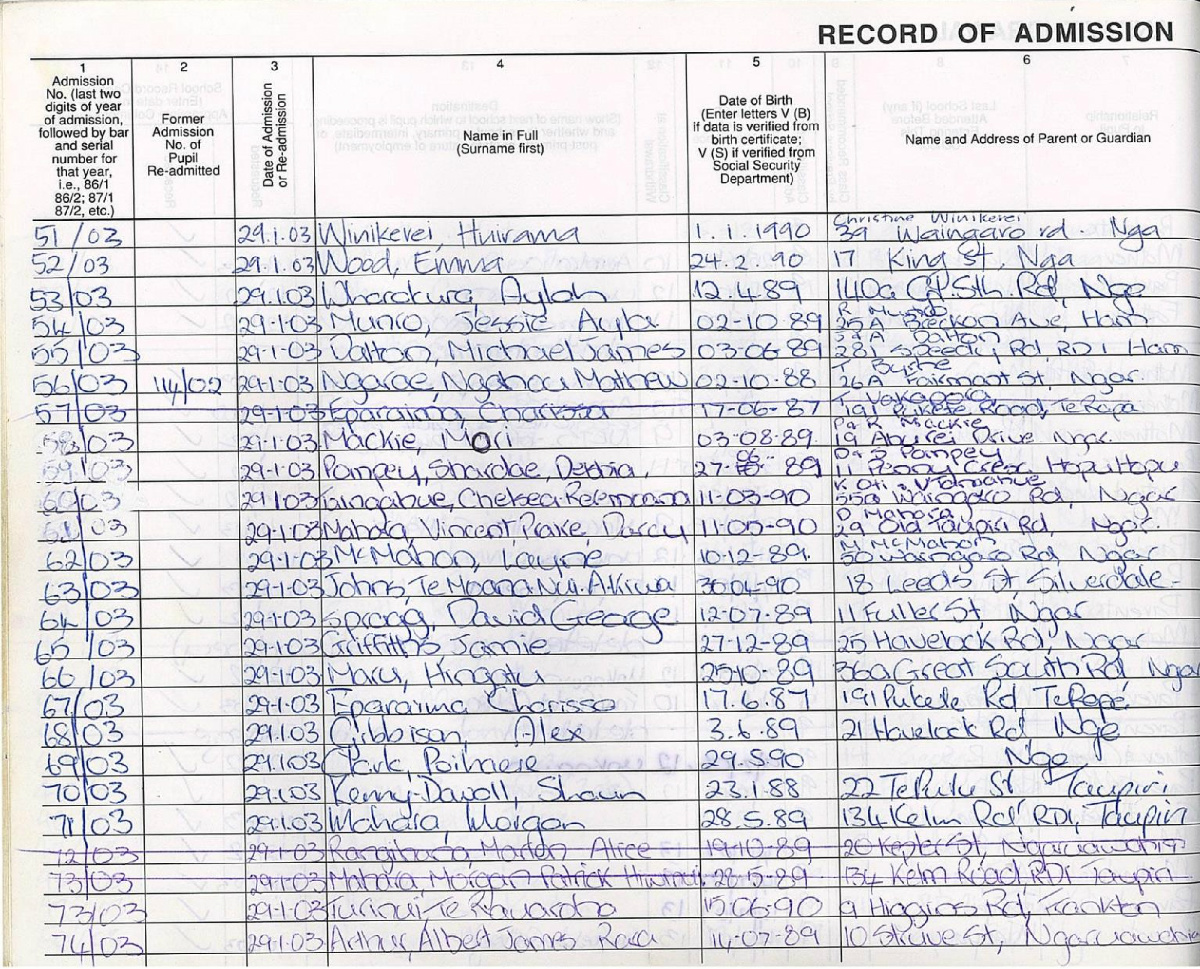 RECORD OF ADMISSION
1 2 3 4 5 6
Admission No. (last two digits of year of admission, followed by bar and serial number for that year, i.e., 86/1 86/2; 87/1 87/2, etc.)
Former Admission No. of Pupil Re-admitted
Date of Admission or Re-admission
Name in Full (Surname first)
Date of Birth (Enter letters V (B) if data is verified from birth certificate; V (S) if verified from Social Security Department)
Name and Address of Parent or Guardian
Christine Winikerei
51/03 29.1.03 Winikerei, Huirama 1.1.1990 39 Waingaro rd. Nga
52/03 29.1.03 Wood, Emma 24.2.90 17 King St, Nga
53/03 29.1.03 Aylah 12.4.89 140a Gt. Sth. Rd, Nga
R Munro
54/03 29-1-03 Munro, Jessie 02-10-89 25A Breckon Ave, Ham
Dalton
55/03 29-1-03 Dalton, Michael James 03-06-89 281 Speedy Rd, RD1 Ham
T Byrne
56/03 14/02 29-1-03 Ngarae, Mathew 02-10-88 26A Fairmont St, Ngar.
57/03 29-1-03 Eparaima Charissa 17-06-87 191 Pukete Road, Te Rapa
P&R Mackie
58/03 29-1-03 Mackie, 03-08-89. 19 Drive Ngar.
D & S Pompey
59/03 29-1-03 Pompey, Shardae, 27- -89 11 Penny Cres. HopuHopu
60/03 29-1-03 Chelsea 11-03-90 55a Waingaro Rd, Ngar
D Mahara
61/03 29-1-03 Mahara, Vincent, Darcy 11-05-90 29 Old Taupiri Rd, Ngar.
M McMahon
62/03 29-1-03 McMahon, Layne 10-12-89. 50 Waingaro Rd, Ngar
63/03 29-1-03 Johns, Te Moana Nui-Atkiwa 30-04-90 18 Leeds St, Silverdale-
64/03 29-1-03 Spragg, David George 12-07-89 11 Fuller St, Ngar
65/03 29-1-03 Griffiths Jamie 27-12-89 25 Havelock Rd, Ngar
66/03 29-1-03 Maru, Hingatu 25-10-89 36a Great South Rd, Ngar
67/03 29-1-03 Eparaima Charissa 17.6.87 191 Pukete Rd, TeRapa
68/03 29.1.03 Gibbison, Alex 3.6.89 21 Havelock Rd Nga
69/03 29.1.03 Clark, 29.5.90 Nga
70/03 29.1.03 Kenny-Dowall, Shaun 23.1.88 22 TePutu St Taupiri
71/03 29.1.03 Mahara Morgan 28.5.89 134 Kelm Rd RD1, Taupiri
72/03 29-1-03 Rangihuna, Marion Alice 19-10-89 20 Kepler St, Ngaruawahia
73/03 29-1-03 Mahara, Morgan Patrick 28-5-89 134 Kelm Road RD1 Taupiri
73/03 29-1-03 15-06-90 9 Higgins Rd, Frankton
74/03 29-1-03 Arthur, Albert James Rara 14-07-89 10 Struve St, Ngaruawahia